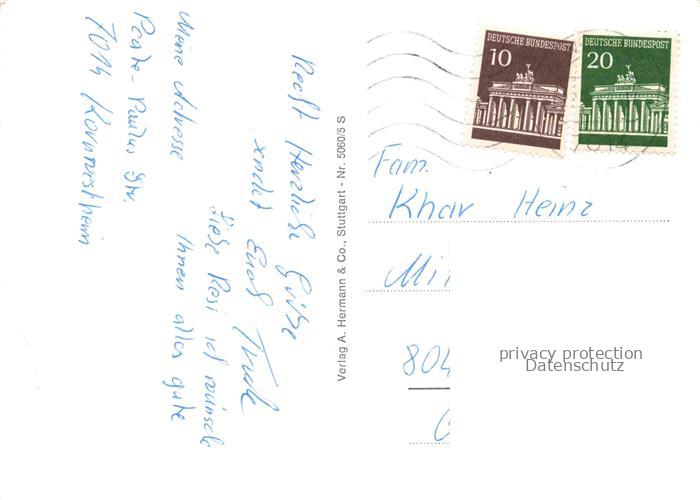 Recht Herzliche Grüße
sendet Euch Trude
Liebe Resi ich wünsche
Ihnen alles gute
Meine Adresse
Str.
7014 Kornwestheim
Verlag A. Hermann & Co., Stuttgart - Nr. 5060/5 S
DEUTSCHE BUNDESPOST
10
DEUTSCHE BUNDESPOST
20
7014
Fam.
Khar Heinz
Mi
804
privacy protection
Datenschutz